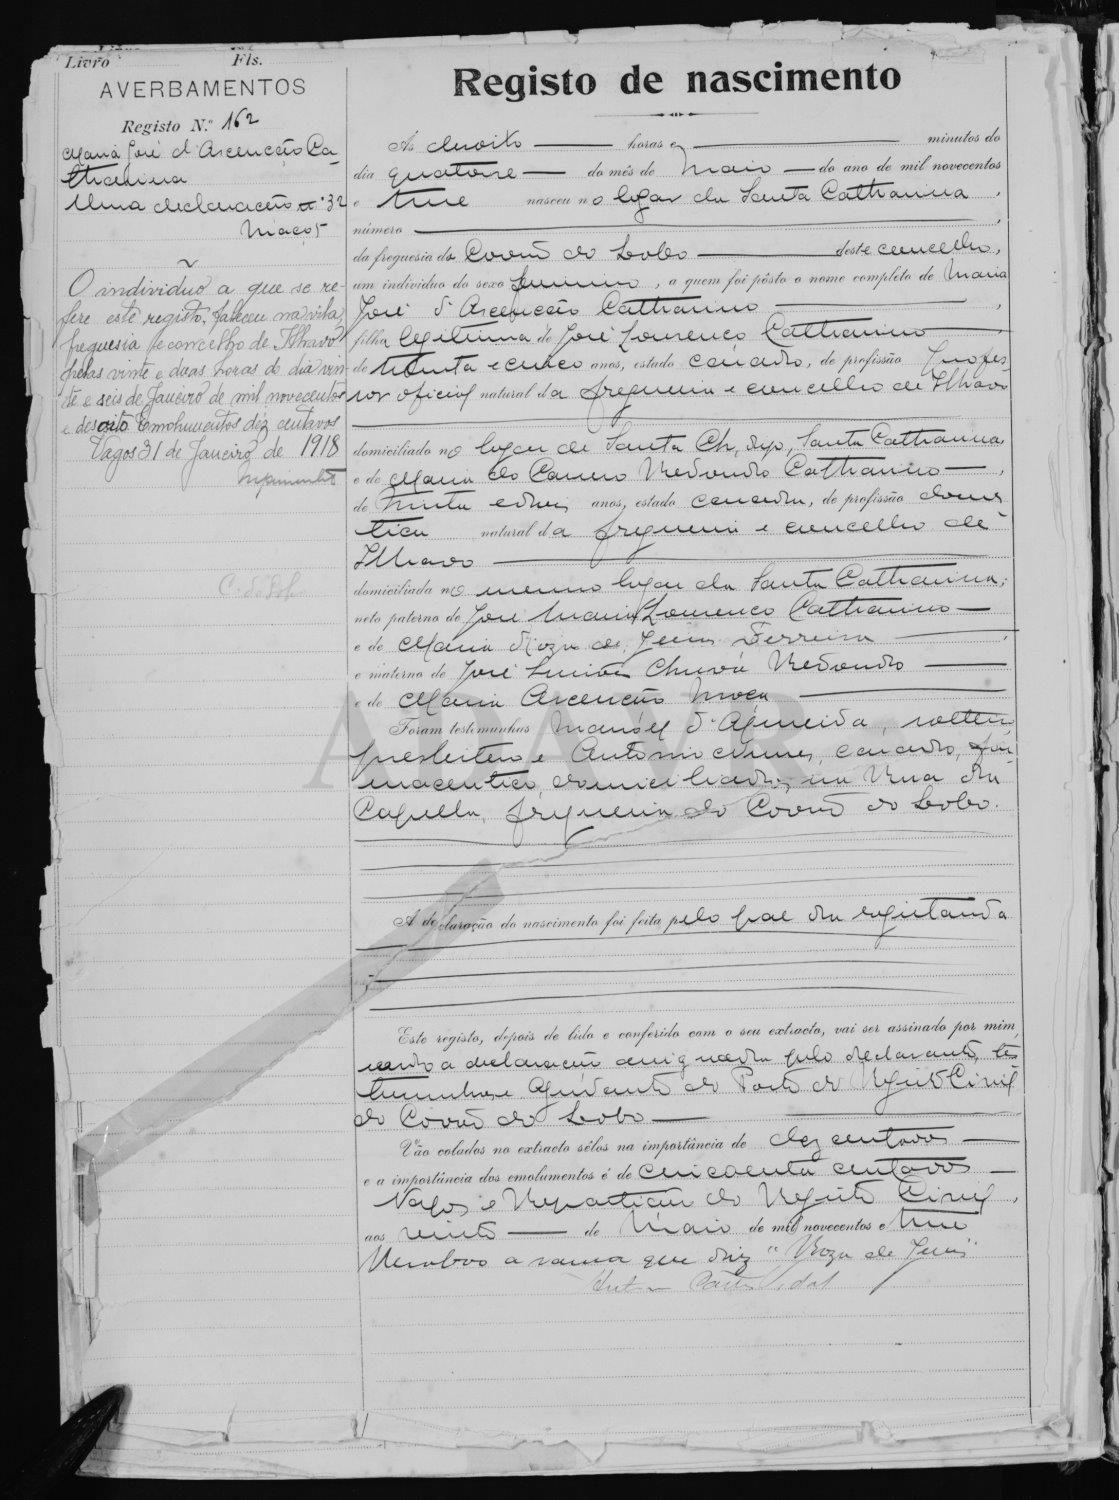 Livro Fls.
AVERBAMENTOS
Registo N.º 162
Maria José d'Ascenção Ca-
tharina
Uma declaração nº 32
Maço 5
O individuo a que se re-
fere este registo, faleceu na vila,
freguesia e concelho de Ilhavo
pelas vinte e duas horas do dia vin-
te e seis de Janeiro de mil novecentos
e desoito. Emolumentos dez centavos
Vagos 31 de Janeiro de 1918
Registo de nascimento
Ás dezoito horas e minutos do
dia quatorze do mês de Maio do ano de mil novecentos
e treze nasceu no logar da Santa Catharina,
número
da freguesia do Covão do Lobo deste concelho,
um individuo do sexo feminino, a quem foi pôsto o nome completo de Maria
José d'Ascenção Catharino,
filha legitima de José Lourenço Catharino
de trinta e cinco anos, estado casado, de profissão profes-
sor oficial natural da freguesia e concelho de Ilhavo
domiciliado no logar de Santa Catharina
e de Maria do Carmo Redondo Catharino,
de trinta e dois anos, estado casada, de profissão domes-
tica natural da freguesia e concelho de
Ilhavo
domiciliada no mesmo logar da Santa Catharina;
neto paterno de José Maria Lourenço Catharino
e de Maria Roza de Jesus Ferreira,
e materno de José Simões Chuvá Redondo
e de Maria Ascenção Moça
Foram testimunhas Manoel d'Almeida, solteiro,
presbitero e Antonio Nunes, casado, far-
maceutico, domiciliados na Rua da
Capella, freguesia do Covão do Lobo.
A declaração do nascimento foi feita pelo pae da registanda
Este registo, depois de lido e conferido com o seu extracto, vai ser assinado por mim,
sendo a declaração assignada pelo declarante, tes-
temunhas e Ajudante do Posto do Registo Civil
do Covão do Lobo
Vão colados no extracto sêlos na importância de dez centavos
e a importância dos emolumentos é de cincoenta centavos
Vagos e Repartição do Registo Civil,
aos vinte de Maio de mil novecentos e treze
Resalvo a rasura que diz "Roza de Jesus"
ADAVR